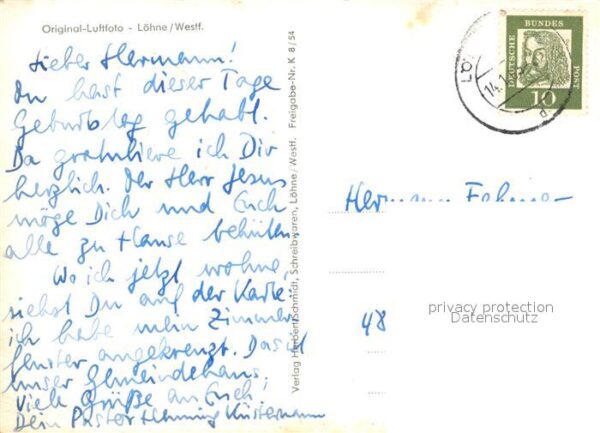 Original-Luftfoto - Löhne/Westf.
Lieber Hermann!
Du hast dieser Tage
Geburtstag gehabt.
Da gratuliere ich Dir
herzlich. Der Herr Jesus
möge Dich und Euch
alle zu Hause behüten.
Wo ich jetzt wohne,
siehst Du auf der Karte:
ich habe mein Zimmer-
fenster angekreuzt. Das ist
unser Gemeindehaus,
Viele Grüße an Euch.
Dein Pastor Henning Küstermann
Freigabe-Nr. K 8/54
Verlag Herbert Schmidt, Schreibwaren, Löhne/Westf.
DEUTSCHE BUNDES POST
10
LÖ
14.1
d
Hermann
48
privacy protection
Datenschutz